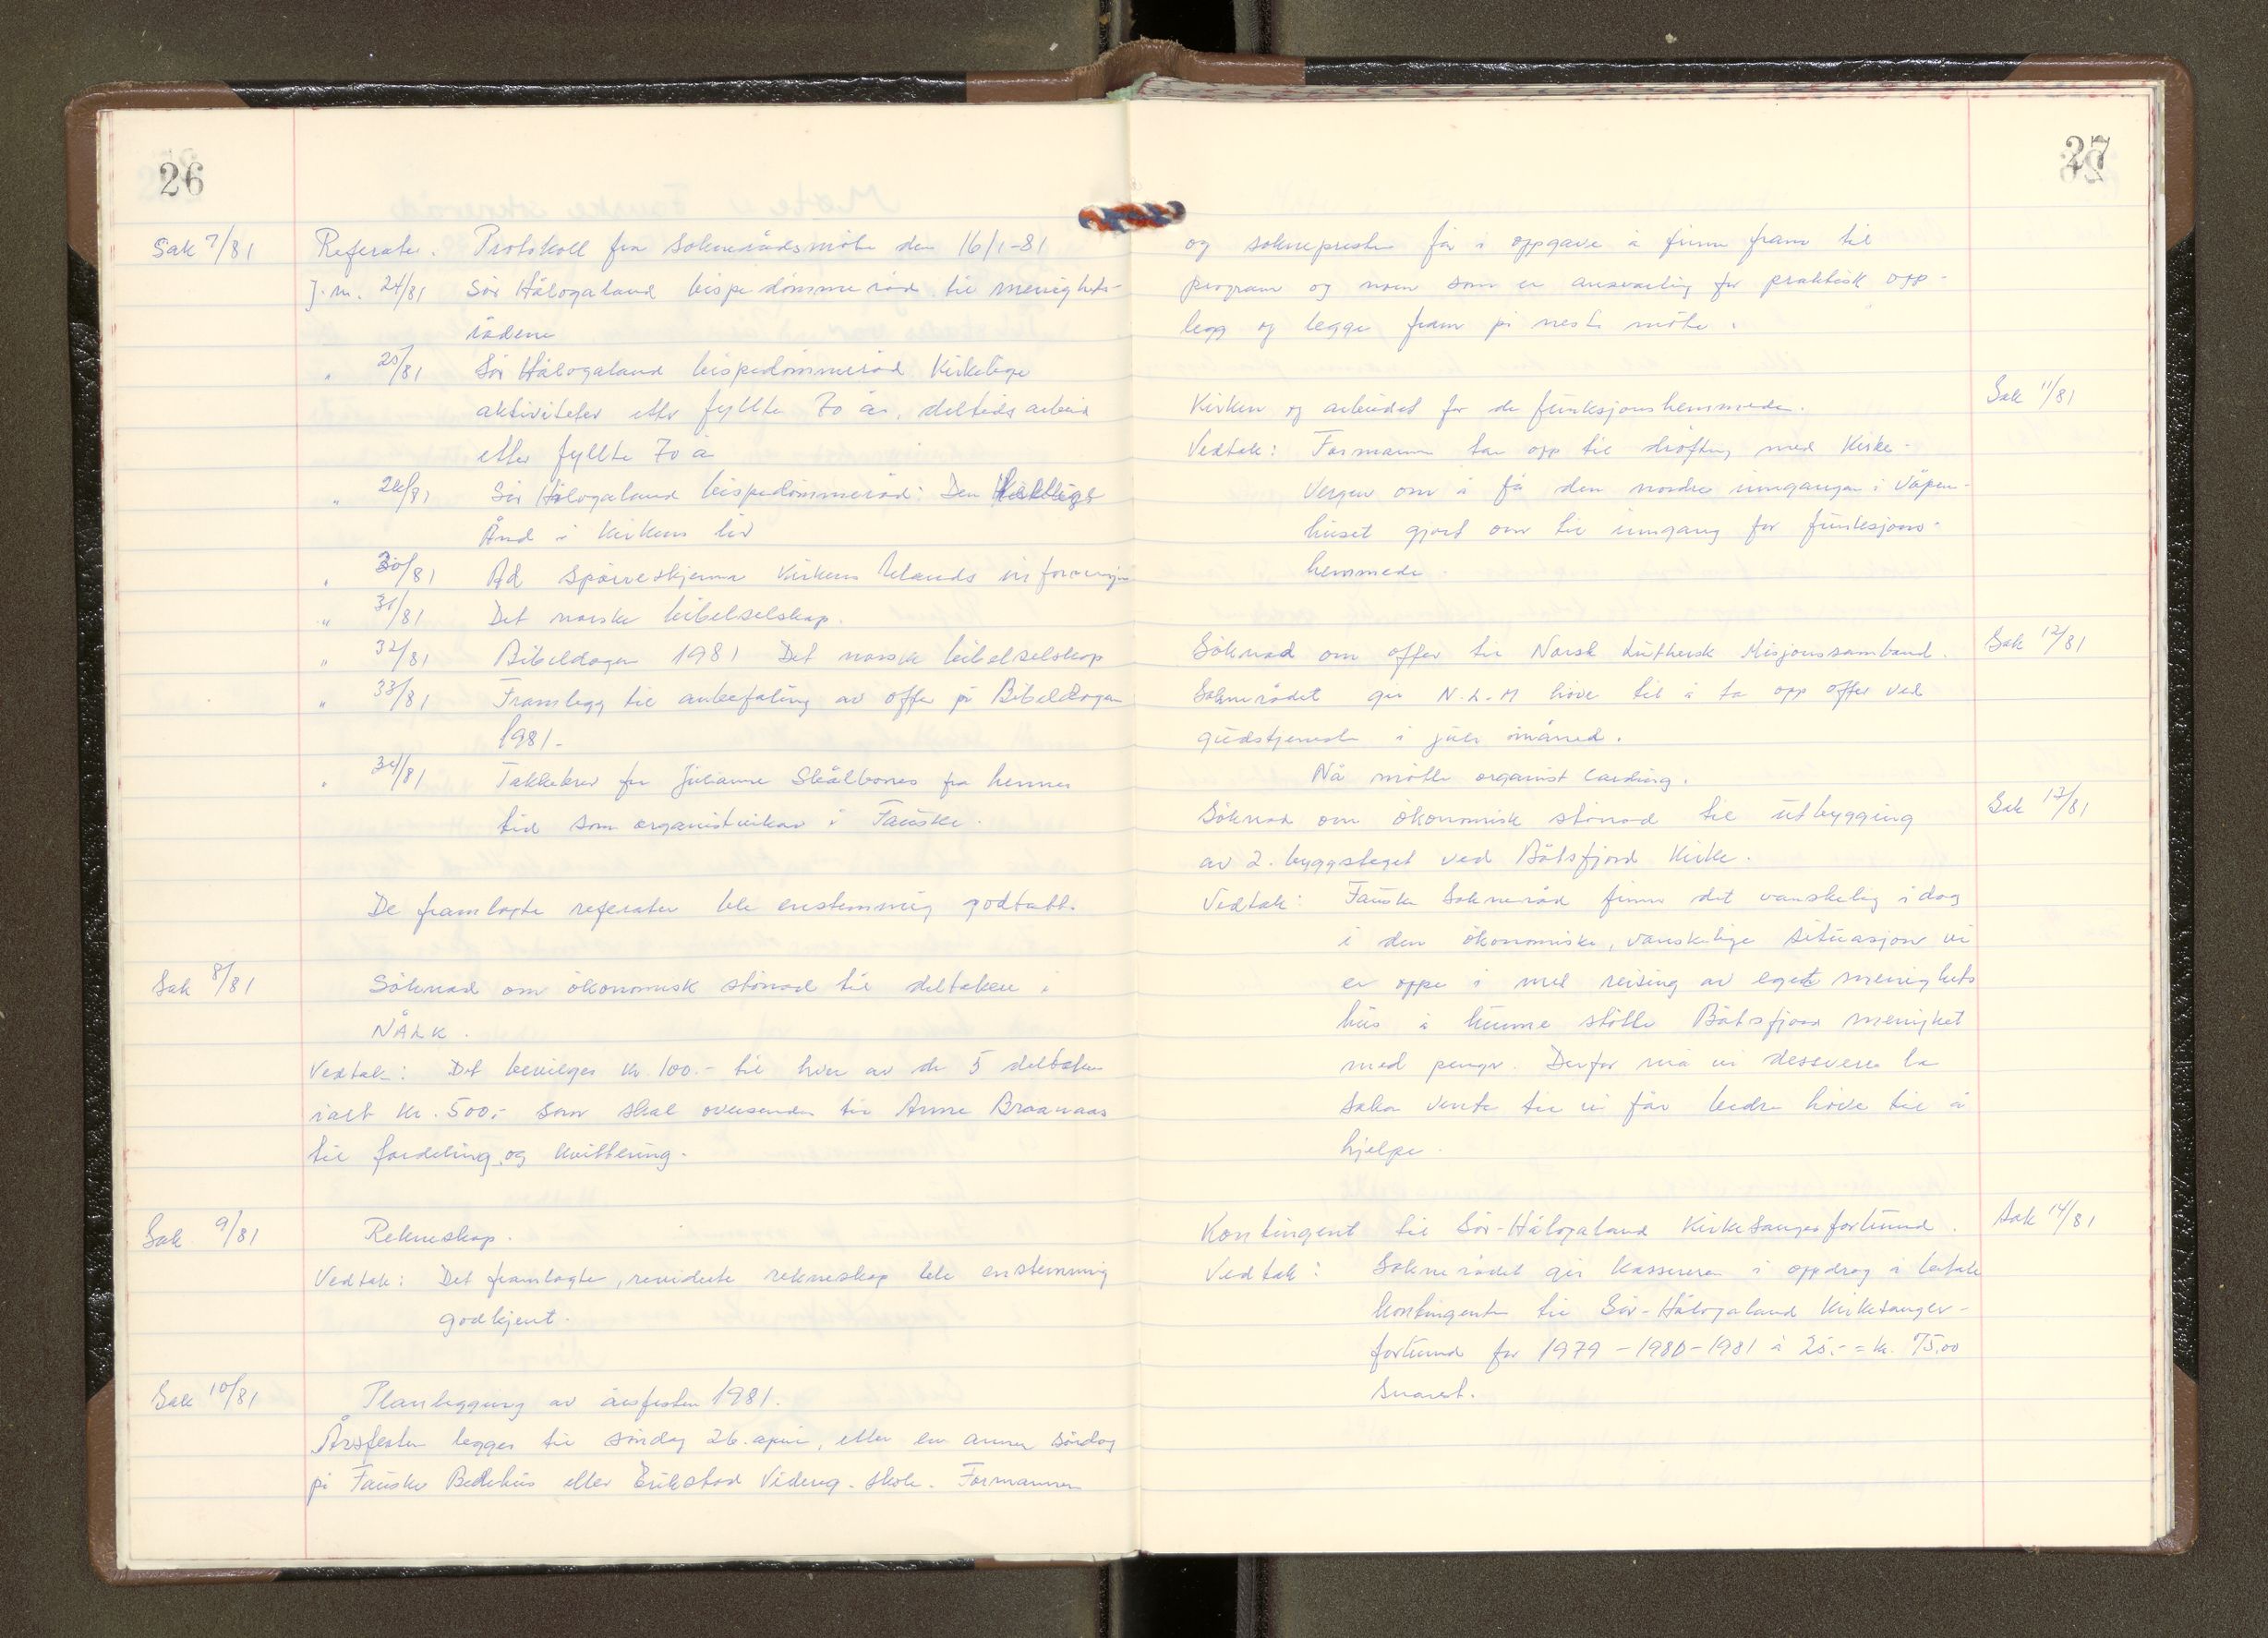 26
Sak 7/81 Referater. Protokoll fra soknerådsmöte den 16/1-81
J.nr. 24/81 Sör Hålogaland bispedömmeråd til menighets-
rådene
" 25/81 Sör Hålogaland bispedömmeråd Kirkelige
aktiviteter etter fyllte 70 år, deltidsarbeid
etter fyllte 70 år
" 26/81 Sör Hålogaland bispedömmeråd: Den Hellige
Ånd i Kirkens liv
" 30/81 Ad spörreskjema Kirkens Utlands informasjon
" 31/81 Det norske bibelselskap.
" 32/81 Bibeldagen 1981 Det norske bibelselskap
" 33/81 Framlegg til anbefaling av offer på Bibeldagen
1981.-
" 34/81 Takkebrev fra Julianne Skålbones fra hennes
tid som organistvikar i Fauske.
De framlagte referater ble enstemmig godtatt.
Sak 8/81 Söknad om ökonomisk stönad til deltakere i
NÅLK.
Vedtak: Det bevilges kr. 100.- til hver av de 5 deltakere
ialt kr. 500,- som skal oversendes til Anne Braanaas
til fordeling og kvittering.
Sak 9/81 Rekneskap.
Vedtak: Det framlagte, reviderte rekneskap ble enstemmig
godkjent.
Sak 10/81 Planlegging av årsfesten 1981.
Årsfesten legges til söndag 26. april, eller en annen söndag
på Fauske Bedehus eller Erikstad Videreg. skole. Formannen
27
og soknepresten får i oppgave å finne fram til
program og noen som er ansvarlig for praktisk opp-
legg og legge fram på neste möte.
Kirken og arbeidet for de funksjonshemmede. Sak 11/81
Vedtak: Formannen tar opp til dröfting med Kirke-
vergen om å få den nordre inngangen i Våpen-
huset gjort om til inngang for funksjons-
hemmede.
Söknad om offer til Norsk Luthersk Misjonssamband. Sak 12/81
Soknerådet gir N.L.M höve til å ta opp offer ved
gudstjeneste i juli måned.
Nå mötte organist Carding.
Söknad om ökonomisk stönad til utbygging Sak 13/81
av 2. byggsteget ved Båtsfjord Kirke.
Vedtak: Fauske Sokneråd finner det vanskelig i dag
i den ökonomiske, vanskelige situasjon vi
er oppe i med reising av eget menighets
hus å kunne stötte Båtsfjord menighet
med penger. Derfor må vi dessverre la
saka vente til vi får bedre höve til å
hjelpe.
Kontingent til Sör-Hålogaland Kirkesangerforbund. Sak 14/81
Vedtak: Soknerådet gir kassereren i oppdrag å betale
kontingenten til Sör-Hålogaland Kirkesanger-
forbund for 1979 - 1980 - 1981 à 25.- = kr. 75,00
snarest.